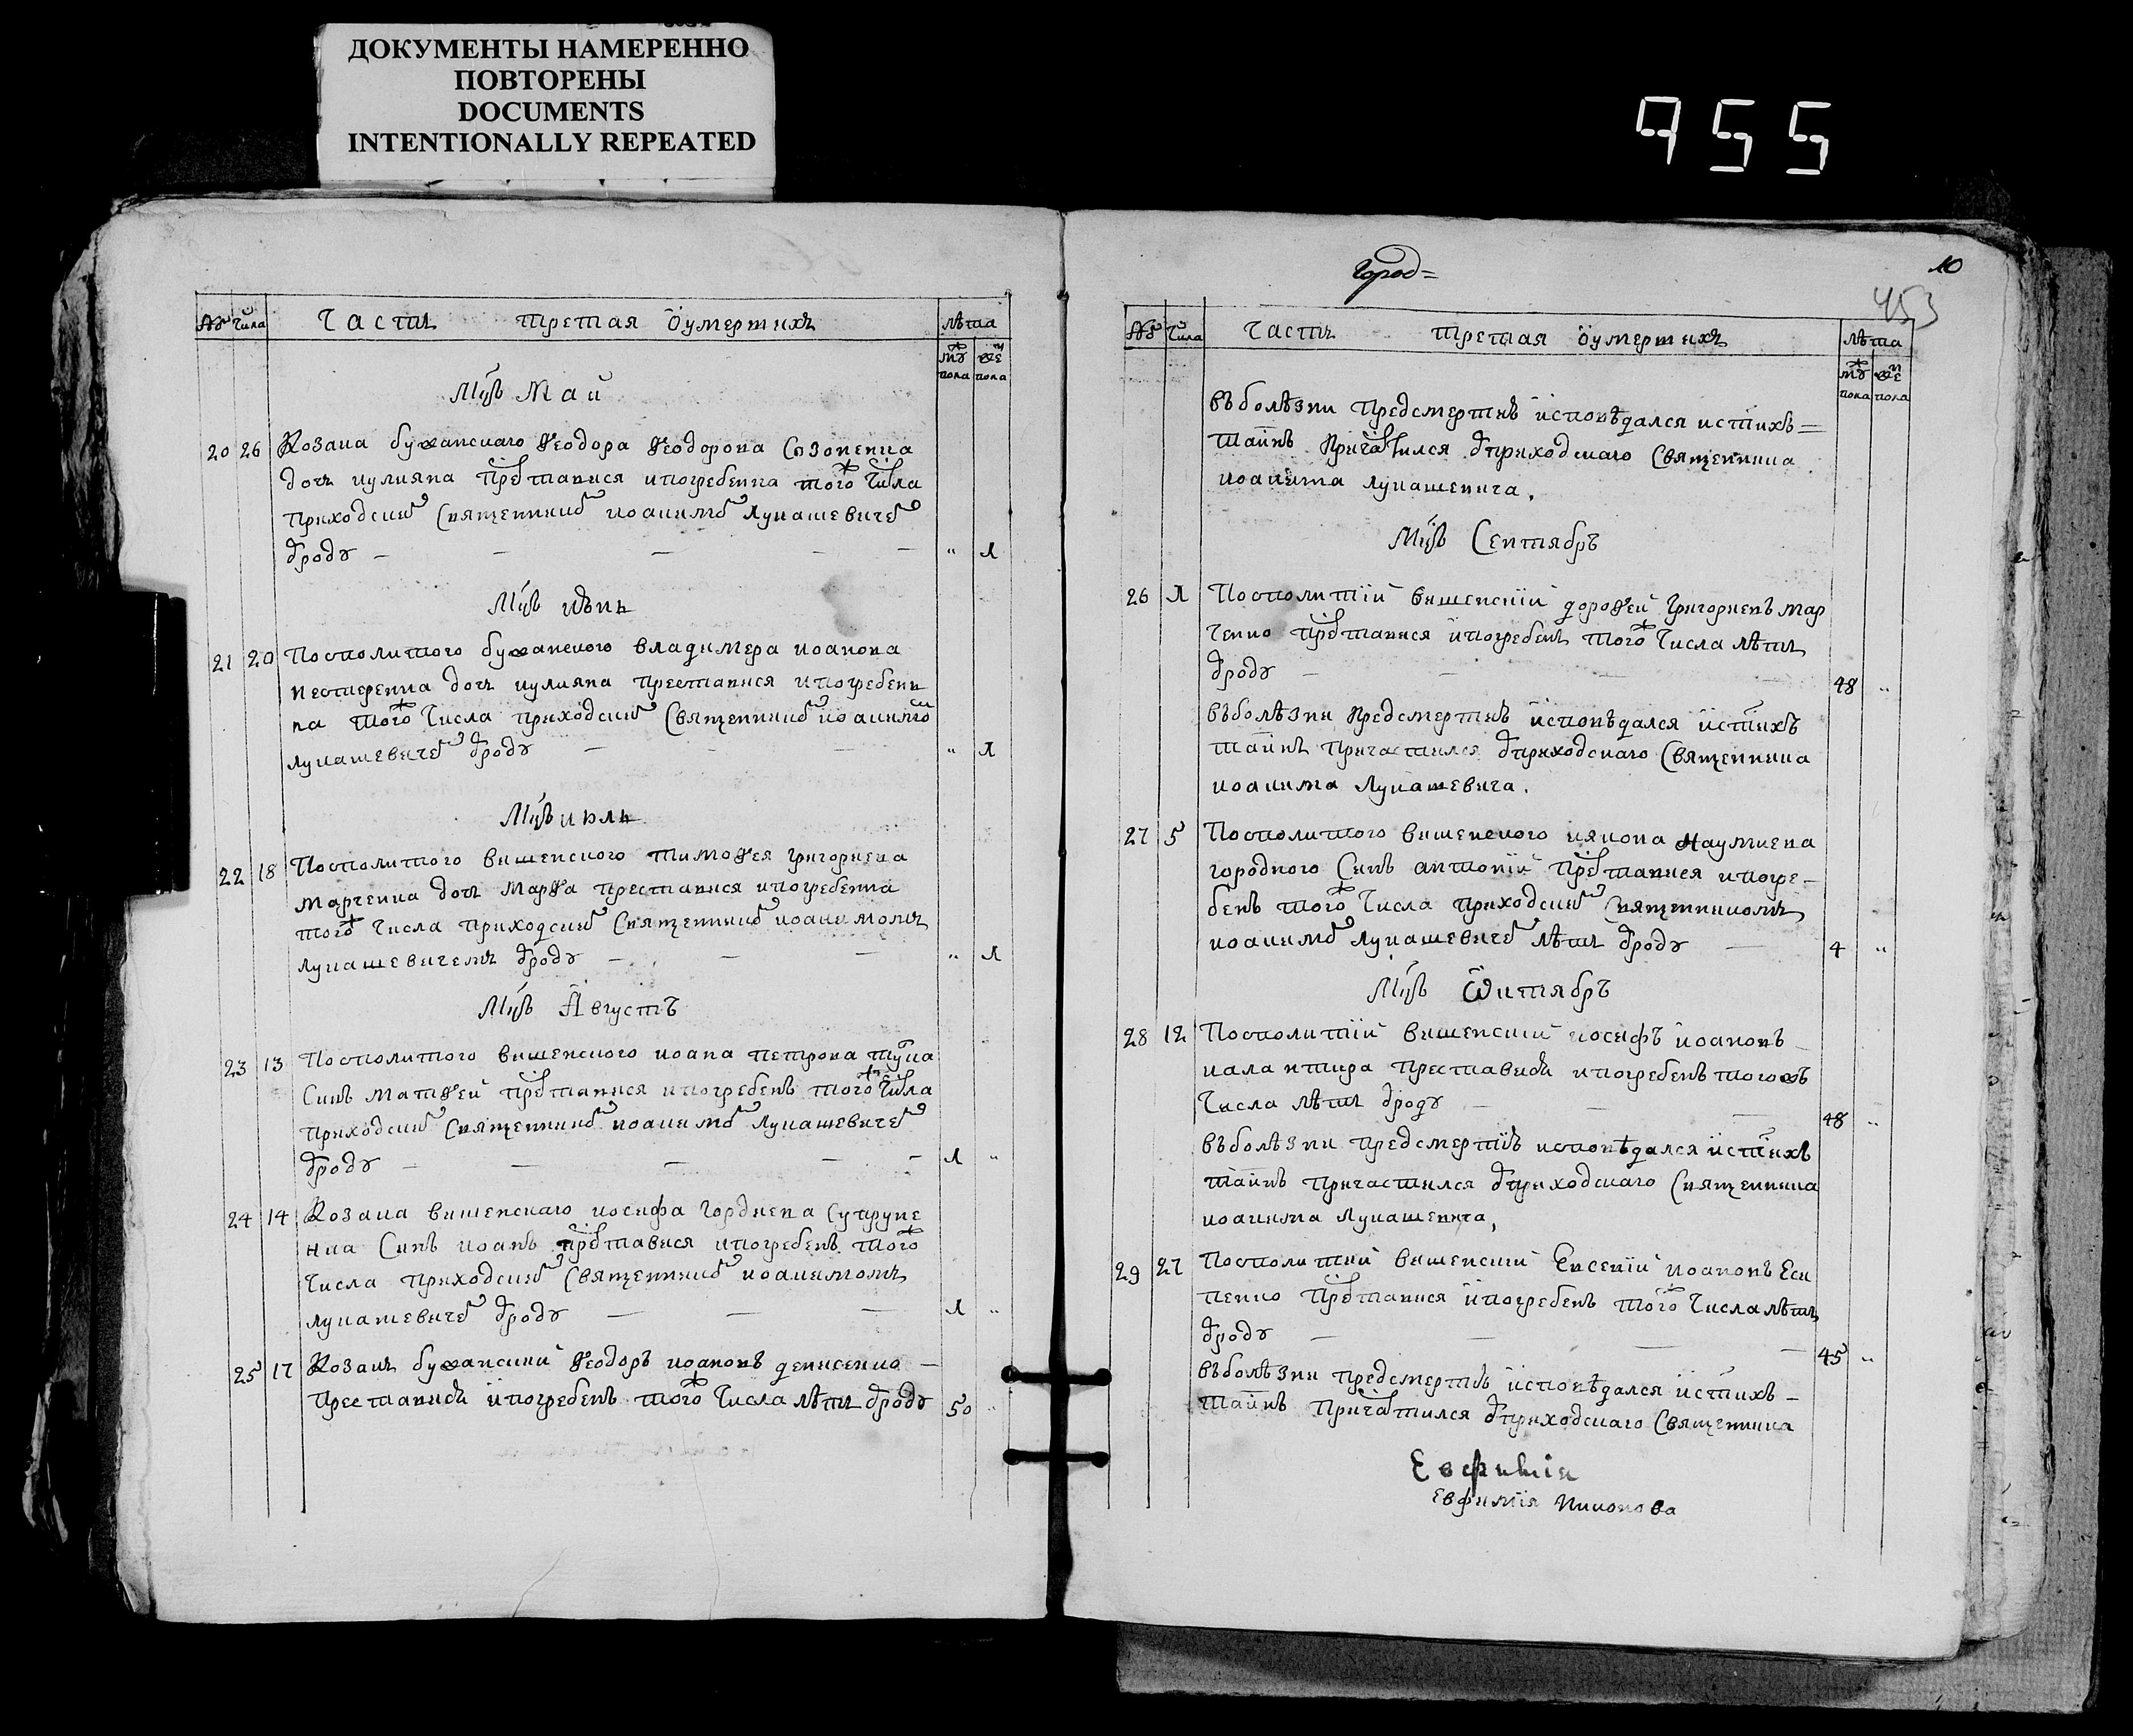 ДОКУМЕНТЫ НАМЕРЕННО
ПОВТОРЕНЫ
DOCUMENTS
INTENTIONALLY REPEATED
955
№ Числа Часть третая ѿ умертихъ лѣта
му пола же пола
Мцъ Май
20 26 Козака бужанскаго Ѳеодора Ѳеодорова Созоненка
дочь иулияна преставися и погребенна того ж числа
приходским священником иоакимом Лукашевичем
ѿ роду — — — — " 1
Мцъ июнь
21 20 Посполитого бужанского владимера иоанова
нестеренка дочь иулияна преставися и погребен
на того ж числа приходским священником иоакимом
лукашевичем ѿ роду — — — " 1
Мцъ июль
22 18 Посполитого вишенского тимоѳея григориева
марченка дочь марѳа преставися и погребенна
того ж числа приходским священником иоакимомъ
лукашевичемъ ѿ роду — — — " 1
Мцъ Августъ
23 13 Посполитого вишенского иоана петрова тука
Синъ матѳей преставися и погребенъ того ж числа
приходским священником иоакимом лукашевичем
ѿ роду — — — — — 1 "
24 14 Козака вишенскаго иосифа гордиева супруне
нка Синъ иоанъ преставися и погребенъ того ж
числа приходским священником иоакимомъ
лукашевичем ѿ роду — — — 1 "
25 17 Козакъ бужанский Ѳеодоръ иоановъ денисенко —
преставися и погребенъ того ж числа лѣтъ ѿ роду 50 "
город=
10
453
№ Числа Часть третая ѿ умертихъ лѣта
му пола же пола
въ болѣзни предсмертнѣ исповѣдался и стихъ =
таинъ причастился ѿ приходскаго священника
иоакима лукашевича.
Мцъ Сентябрь
26 1 Посполитій вишенскій дороѳей григориевъ мар
ченко преставися и погребенъ того ж числа лѣтъ
ѿ роду — — — — 48 "
въ болѣзни предсмертнѣ исповѣдался и стихъ
таинъ причастился ѿ приходскаго священника
иоакима лукашевича.
27 5 Посполитого вишенского иякова наумиева
городного Синъ антоній преставися и погре-
бенъ того ж числа приходским священникомъ
иоакимом лукашевичем лѣтъ ѿ роду — 4 "
Мцъ Ѡктябръ
28 12 Посполитій вишенский иосифъ иоановъ
калантира преставися и погребенъ того жъ
числа лѣтъ ѿ роду — — — 48 "
въ болѣзни предсмертнѣ исповѣдался и стихъ
таинъ причастился ѿ приходскаго священника
иоакима лукашевича,
29 27 Посполитий вишенский Евсевій иоановъ Еси
пенко преставися и погребенъ того ж числа лѣтъ
ѿ роду — — — 45 "
въ болѣзни предсмертнѣ исповѣдался и стихъ —
таинъ причастился ѿ приходскаго священника
Евфимія
Евфимія